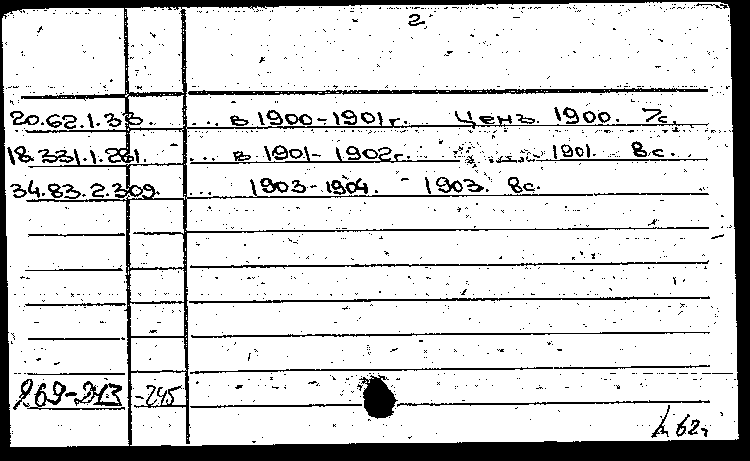 2
20.62.1.33. ... в 1900-1901 г. Ценз. 1900. 7с.
18.331.1.281. ... в 1901-1902г. 1901. 8с.
34.83.2.309. ... 1903-1904. 1903. 8с.
269-213 -245
62г